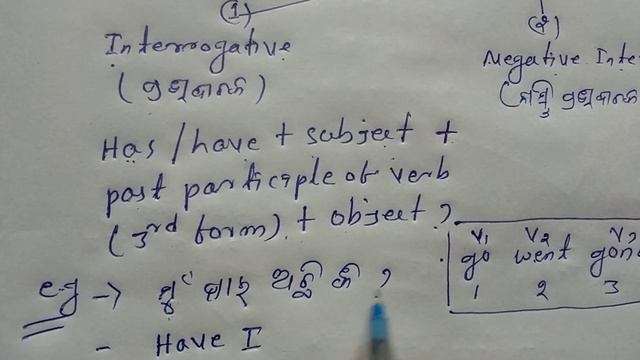 (1)
Interrogative
(ପ୍ରଶ୍ନବାଚକ)
Has/have + subject +
past participle of verb
(3rd form) + object?
e.g → ମୁଁ ଯାଇ ଅଛି କି ?
- Have I
(2)
Negative Inte
(ନାସ୍ତି ପ୍ରଶ୍ନବାଚକ
V1 V2 V3
go went gon
1 2 3